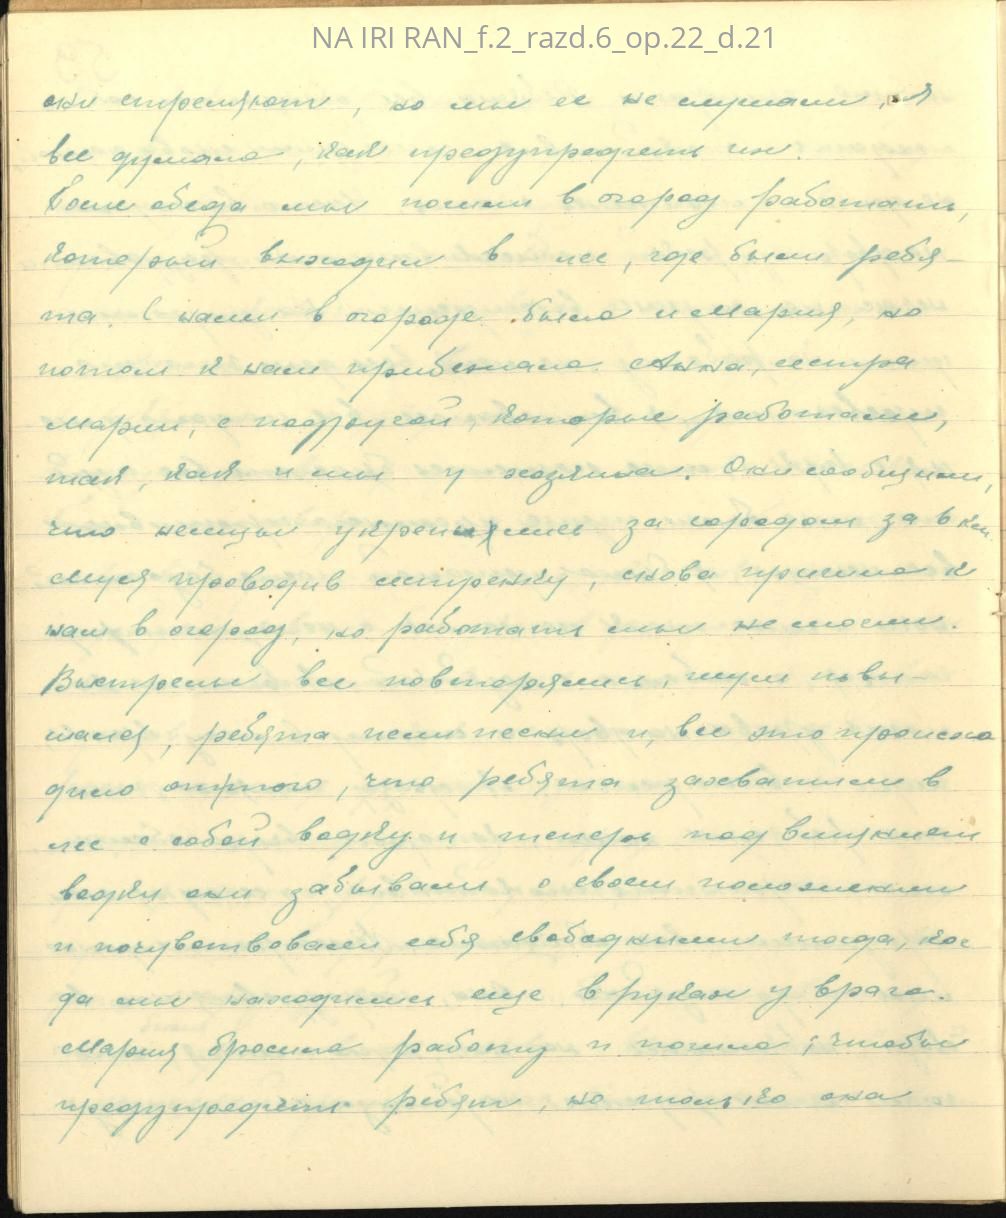 NA IRI RAN_f.2_razd.6_op.22_d.21
они стреляют, но мы ее не слушали, я
все думала, как предупредить их.
После обеда мы пошли в огород работать,
который выходил в лес, где были ребя-
та. С нами в огороде была и Мария, но
потом к нам прибежала Анна, сестра
Марии, с подругой, которые работали,
так, как и мы у хозяина. Они сообщили,
что немцы укрепились за городом за 8 км.
Муся проводив сестренку, снова пришла к
нам в огород, но работать мы не могли.
Выстрелы все повторялись, шум повы-
шался, ребята пели песни и, все это происхо
дило оттого, что ребята захватили в
лес с собой водку и теперь под влиянием
водки они забывали о своем положении
и почувствовали себя свободными тогда, ког
да мы находились еще в руках у врага.
Мария бросила работу и пошла, чтобы
предупредить ребят, но только она